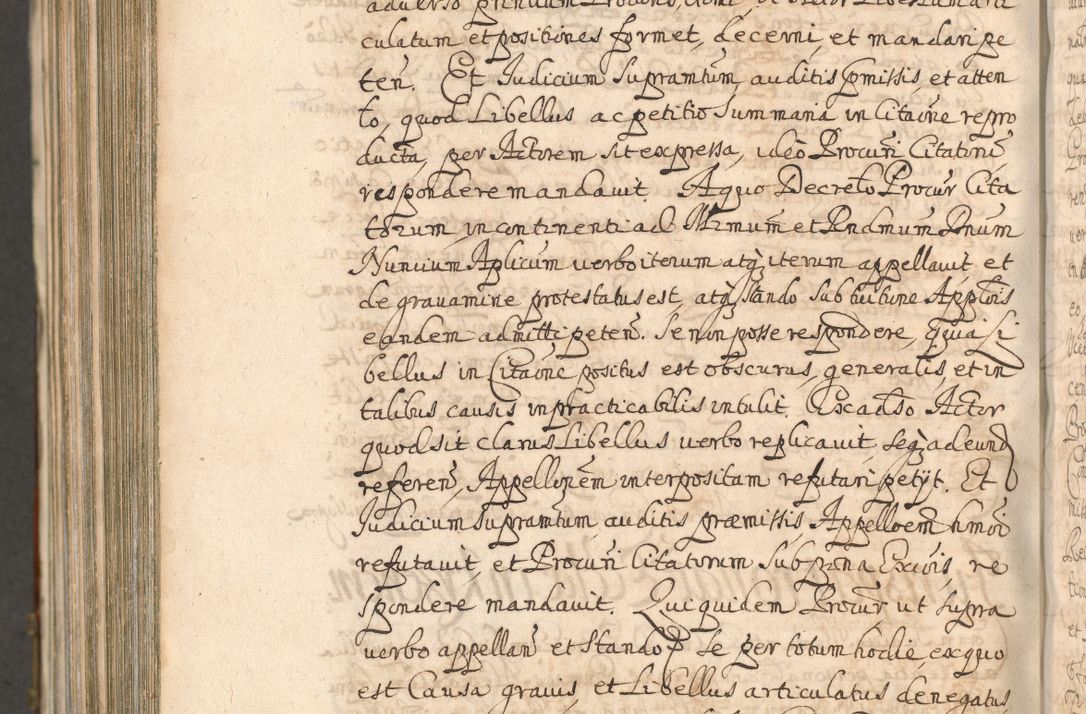 culatum et positiones formet, decerni, et mandari pe
teñ. Et Judicium Supramtum, auditis pmissis, et atten
to, quod Libellus ac petitio Summaria in Citaōne repro
ducta, per Actorem sit expressa, ideo Procuri Citatorū
respondere mandavit. A quo Decreto Procur Cita
torum, in continenti ad Illrmum et Rndmum Dnum
Nuncium Aplicum verbo iterum atq iterum appellavit et
de gravamine protestatus est, atq stando sub tuitione Appłois
eandem admitti peteñ. Se non posse respondere, quia Li
bellus in Citaōne positus est obscurus, generalis, et in
talibus causis inpracticabilis intulit. Ex adso Actor
quod sit clarus Libellus verbo replicavit, seq ad eund
refereñ, Appellonem interpositam refutari petijt. Et
Judicium Supramtum, auditis præmissis Appelloem hmōi
refutavit, et Procuri Citatorum sub pæna Excōis, re
spondere mandavit. Qui quidem Procur ut supra
verbo appellañ et stando se per totum hodie, ex quo
est Causa gravis, et Libellus articulatus denegatus